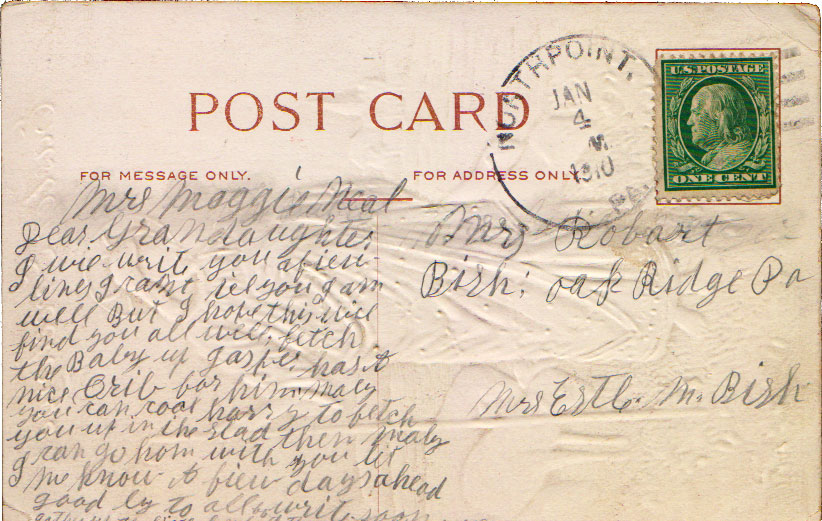 POST CARD
NORTHPOINT,
JAN
4
M
1910
PA.
U.S. POSTAGE
ONE CENT
FOR MESSAGE ONLY.
FOR ADDRESS ONLY.
Mrs Maggie Neal
Dear Grandaughter
I wil write you a fiew
lines
well But I hope this will
find you all well. fetch
the Baby up gasper has A
nice Crib for him. maby
you can coax harry to fetch
you up in the slad then maby
I can go hom with you let
me know A fiew days ahead
good by to all write soon
Mrs Robart
Bish; oak Ridge Pa
Mrs M. Bish